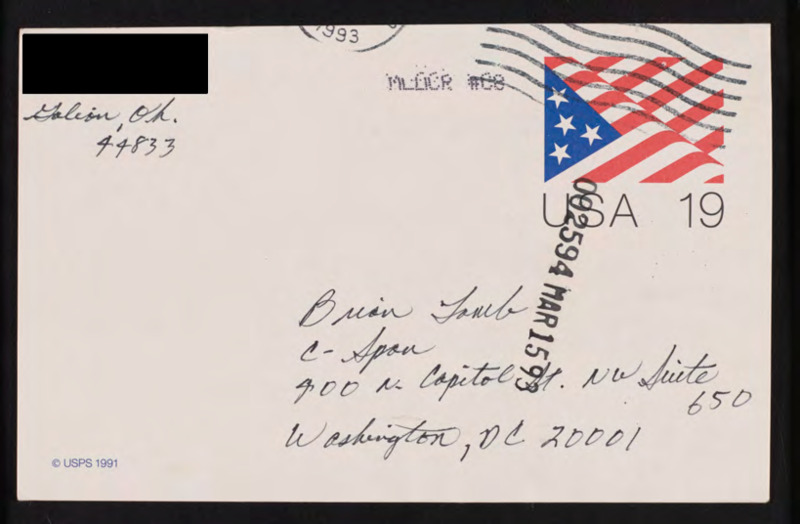 1993
MLOCR #08
Galion, Oh.
44833
USA 19
092594 MAR 15 93
Brian Lamb
C-Span
400 N. Capitol St. NW Suite
650
Washington, DC 20001
© USPS 1991